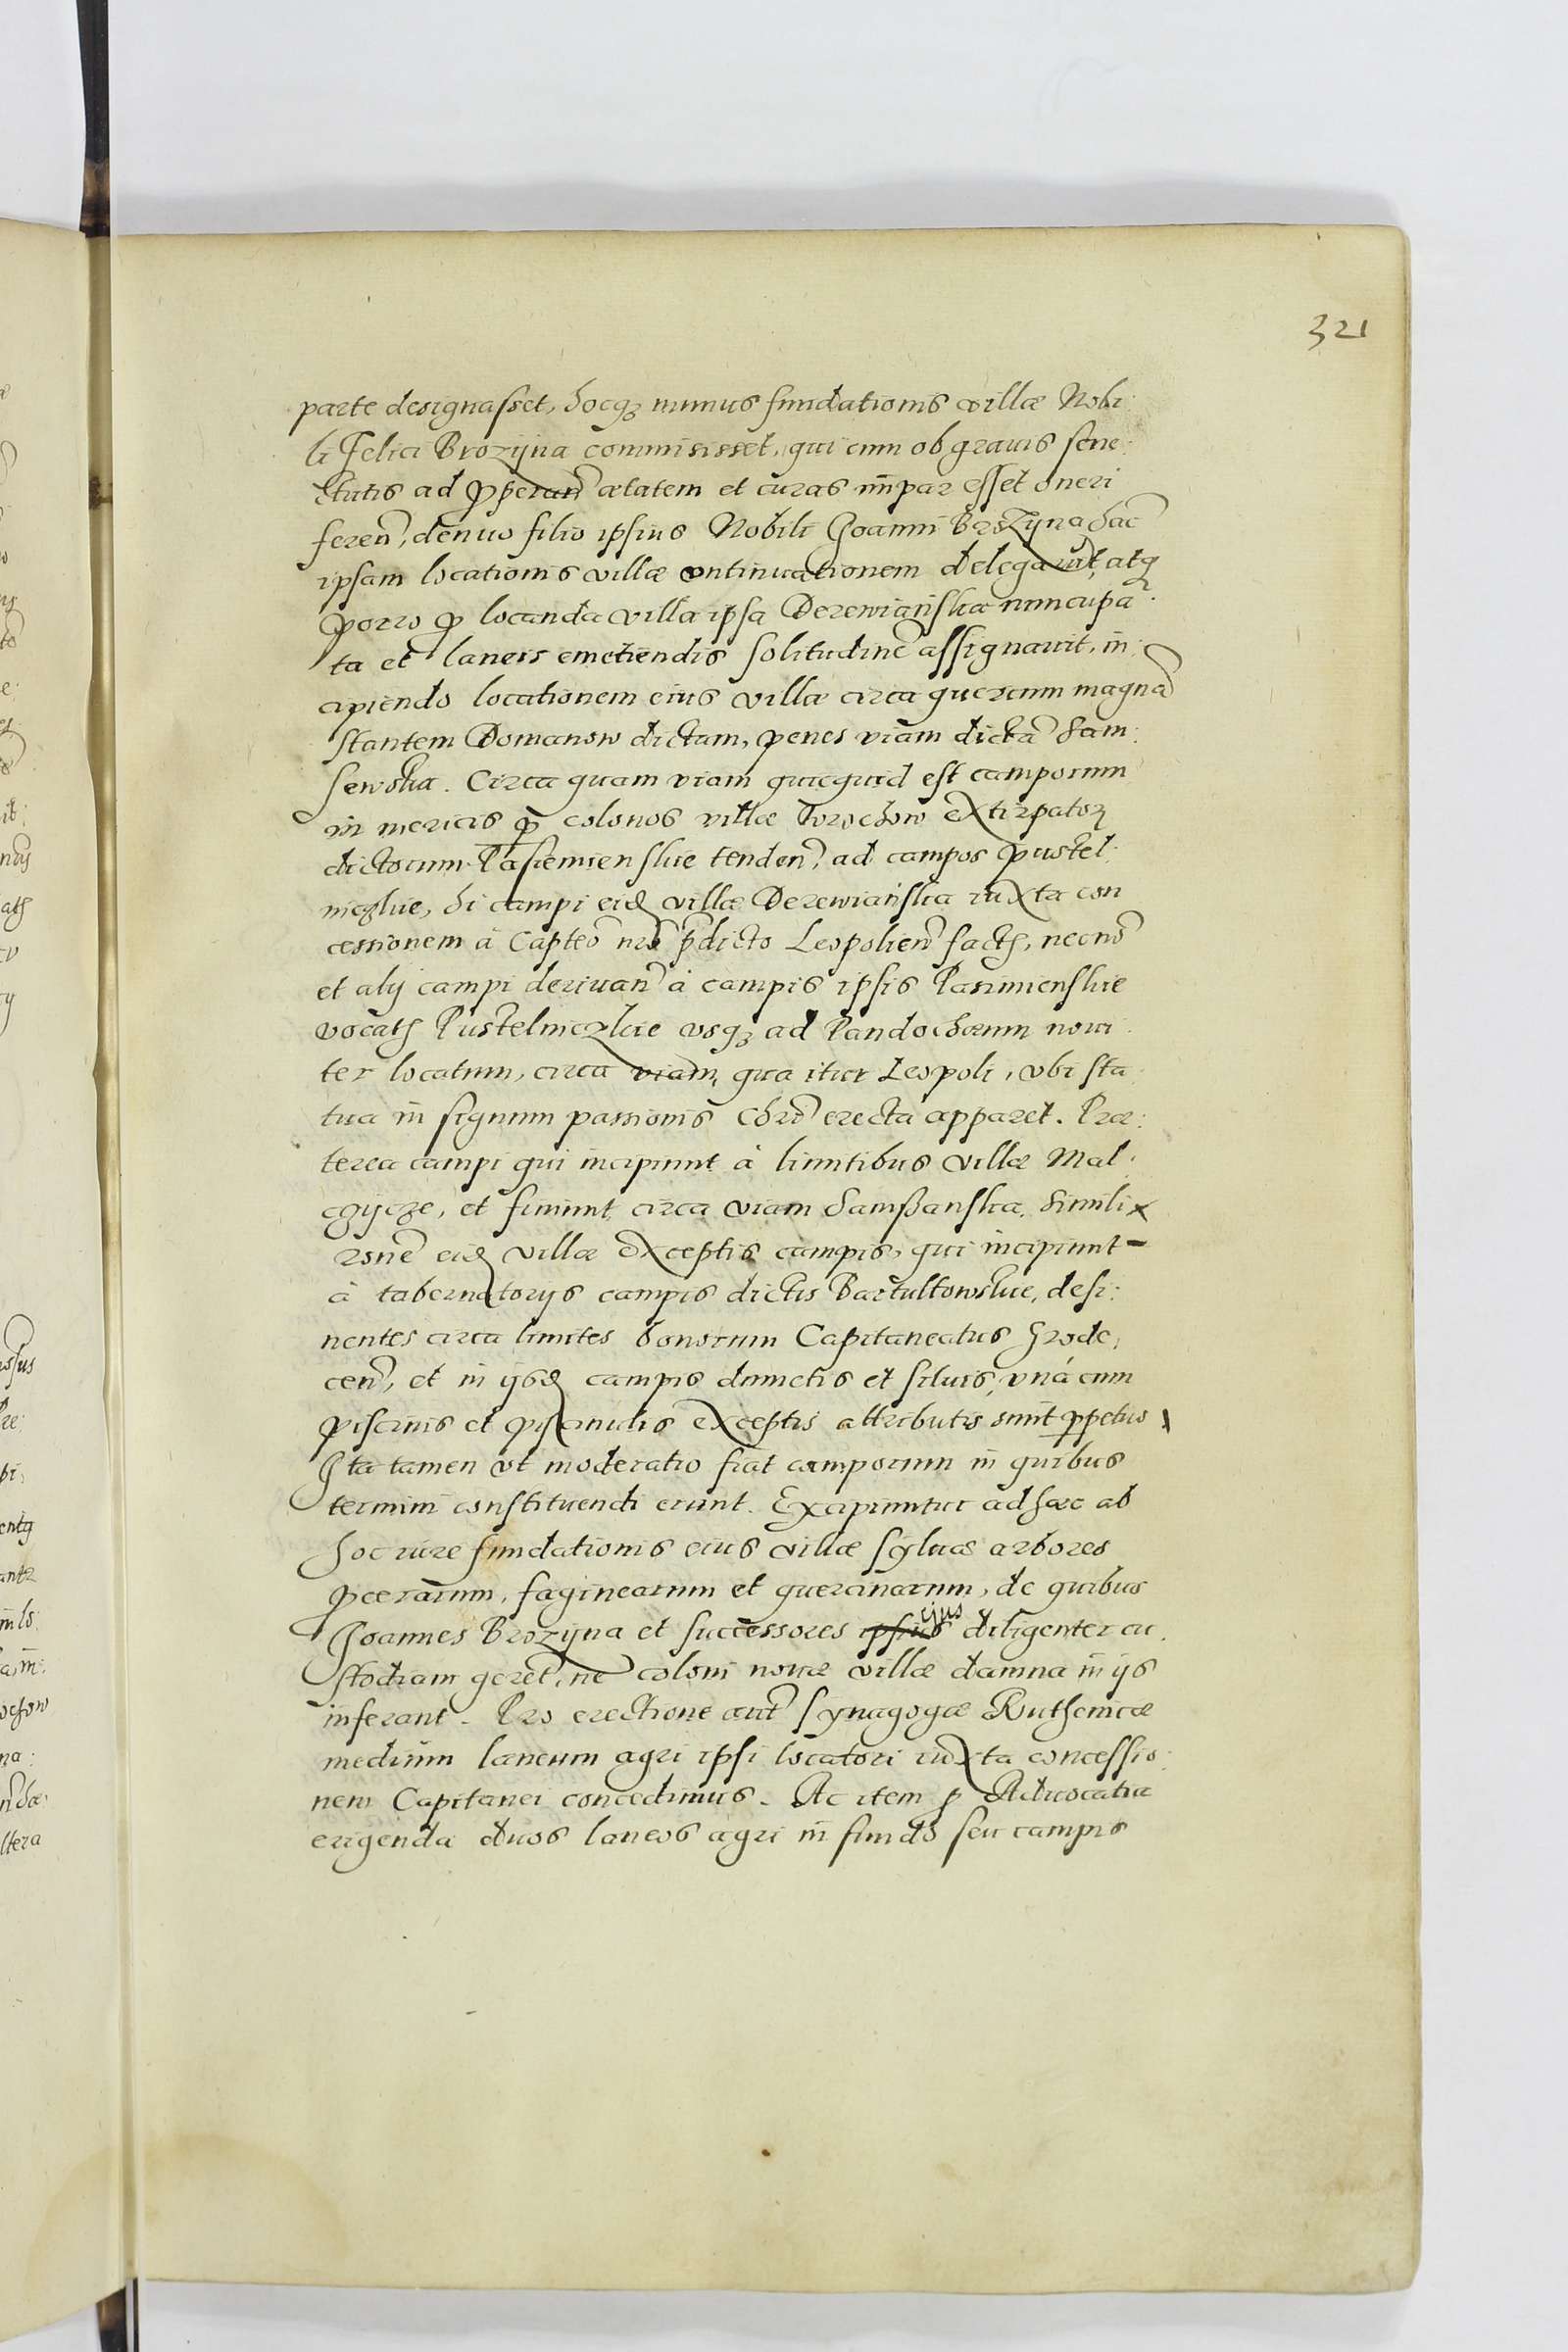 321
parte designasset, hocq₃ munus fundationis villæ Nobi:
li Felici Brozÿna commisisset, qui cum ob grauis sene:
ctutis ad properan̄ ætatem et curas impar esset oneri
feren̄, denuo filio ipsius Nobili Joanni Brozÿna hac̄
ipsam locationis villæ continuationem delegauit, atq₃
porro p locanda villa ipsa Derewiańska nuncupa:
ta et laneis emetiendis solitudinē assignauit, in:
cipiendo locationem eius villæ circa quercum magnā
stantem Domanow dictam, penes viam dictā Ham:
sewska. Circa quam viam quicquid est camporum
in mericis p colonos villæ Dorochow extirpatoꝝ
dictorum Pasiemienskie tenden̄, ad campos Pustel:
niczkie, hi campi eid villæ Derewiańska iuxta con
cessionem à Capteo nr̄o p̄dicto Leopolien̄ factā, necnō
et alij campi deriuan̄ à campis ipsis Pasimienskie
vocatis Pustelniczkie vsq₃ ad Pandochæum noui:
ter locatum, circa viam, qua itur Leopoli, vbi sta
tua in signum passionis Chrī erecta apparet. Præ:
terea campi qui incipiunt à limitibus villæ Mal:
czÿcze, et finiunt circa viam Hamßanska, simili
rōne eid villæ exceptis campis, qui incipiunt
à tabernatorijs campis dictis Bartultowskie, desi:
nentes circa limites bonorum Capitaneatus Grode,
cen̄, et in ijsd campis dumetis et siluis, vnà cum
piscinis et piscinulis exceptis attributis sunt ppetuo
Ita tamen vt moderatio fiat camporum in quibus
termini constituendi erunt. Excipiuntur ad hæc ab
hoc iure fundationis eius villæ syluæ arbores
pcerarum, faginearum et quercinarum, de quibus
Joannes Brozÿna et successores ipsius ejus diligenter cu:
stodiam geret, ne coloni nouæ villæ damna in ijs
inferant. Pro erectione aut̄ Synagogæ Ruthenicæ
medium laneum agri ipsi locatori iuxta concessio:
nem Capitanei concedimus. Ac item p Aduocatia
erigenda duos laneos agri in fundo seu campis